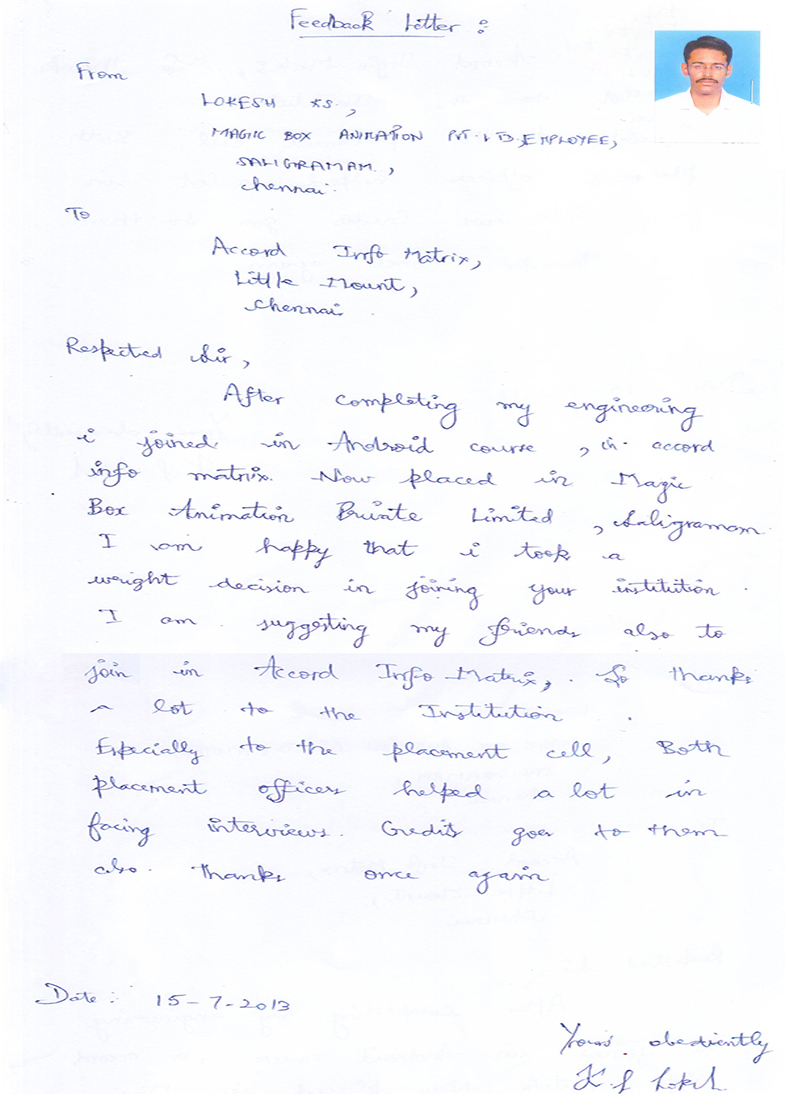 Feedback Letter :
From
LOKESH K.S.,
MAGIC BOX ANIMATION PVT. LTD. EMPLOYEE,
SALIGRAMAM.,
Chennai.
To
Accord Info Matrix,
Little Mount,
Chennai.
Respected Sir,
After completing my engineering
i joined in Android course, in accord
info matrix. Now placed in Magic
Box Animation Private Limited, Saligramam.
I am happy that i took a
weight decision in joining your institution.
I am suggesting my friends also to
join in Accord Info Matrix,. So thanks
a lot to the Institution.
Especially to the placement cell, Both
placement officers helped a lot in
facing interviews. Credits goes to them
also. thanks once again
Date : 15-7-2013
Yours obediently
K.S. Lokesh